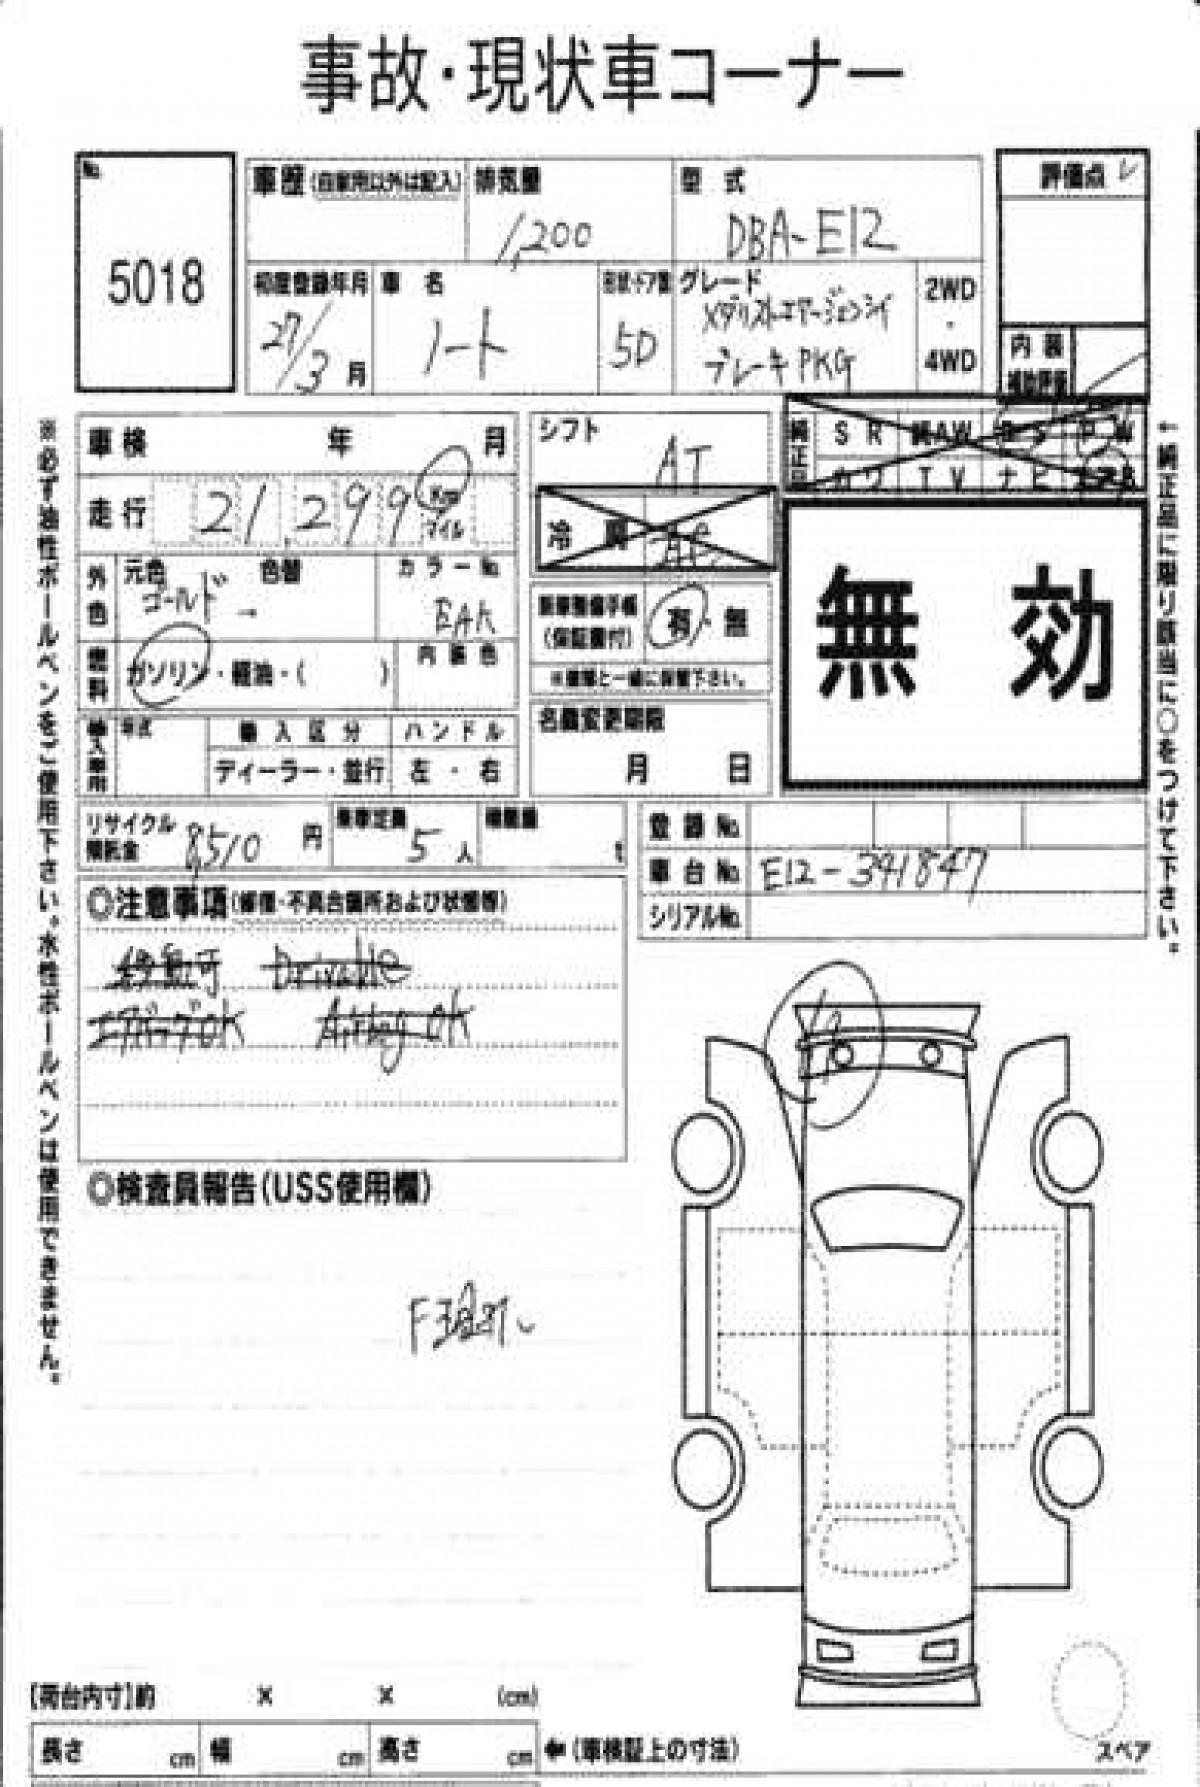 事故・現状車コーナー
No.
5018
車歴(自家用以外は記入)
排気量
1,200
型 式
DBA-E12
評価点
初度登録年月
27/3月
車 名
ノート
形状・ドア数
5D
グレード
メダリストエマージェンシイ
ブレーキPKG
2WD
・
4WD
内 装
補助評価
車検 年 月
走行 21,299 Km マイル
シフト
AT
純正品
S R 純AW P S P W
カワ T V ナビ エアB
冷 房
AC
外色
元色 色替
ゴールド →
カラーNo.
EAK
新車整備手帳
(保証書付)
有・無
※書類と一緒に保管下さい。
無 効
燃料
ガソリン・軽油・( )
内装色
輸入車用
年式
輸入区分
ディーラー・並行
ハンドル
左・右
名義変更期限
月 日
リサイクル
預託金
8,510 円
乗車定員
5 人
積載量
t
登録No.
車台No. E12-341847
シリアルNo.
◎注意事項(修復・不具合箇所および状態等)
Drivable
エアバッグOK Airbag OK
◎検査員報告(USS使用欄)
※必ず油性ボールペンをご使用下さい。水性ボールペンは使用できません。
←純正品に限り該当に○をつけて下さい。
【荷台内寸】約 × × (cm)
長さ cm 幅 cm 高さ cm ←(車検証上の寸法)
スペア